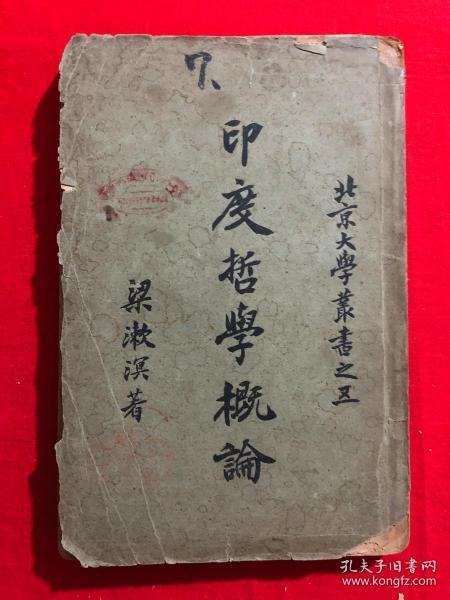 7、
北京大學叢書之五
印度哲學概論
梁漱溟著
孔夫子旧书网
www.kongfz.com